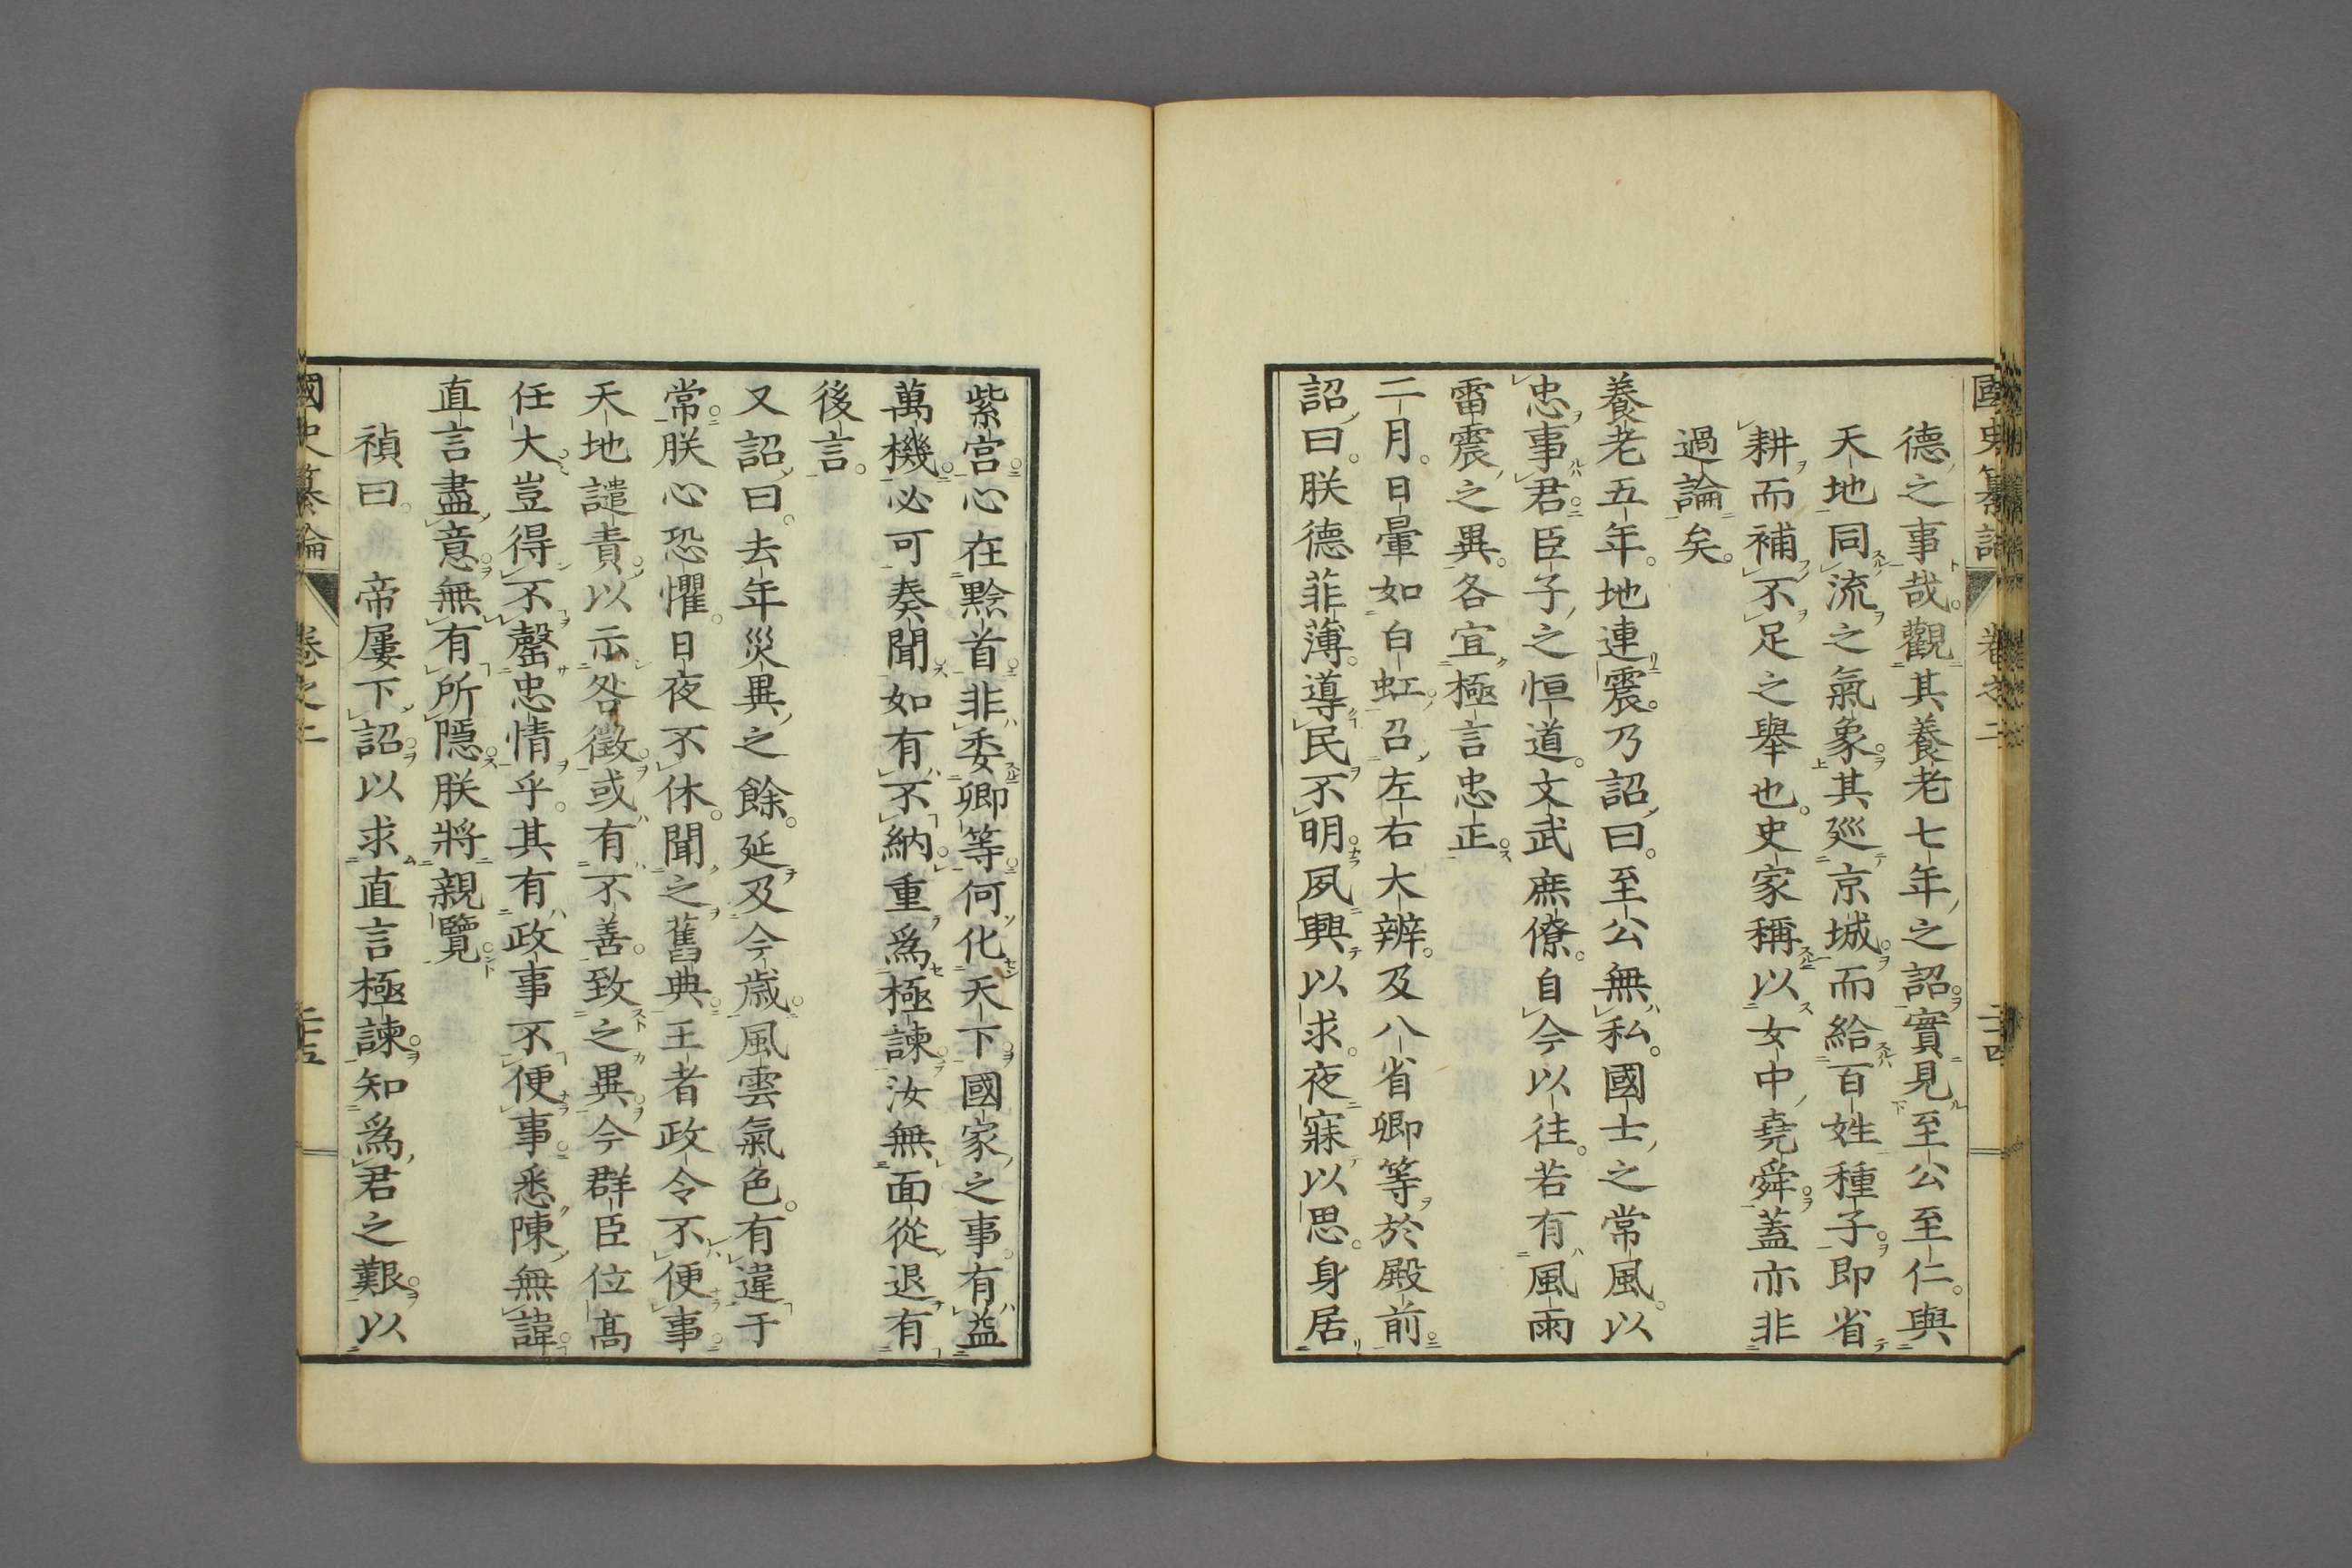 德之事哉。觀其養老七年之詔。實見至公至仁。與
天地同流之氣象。其廵京城。而給百姓種子。即省
耕而補不足之舉也。史家稱以女中堯舜。蓋亦非
過論矣。
養老五年。地連震。乃詔曰。至公無私。國士之常風。以
忠事君。臣子之恒道。文武庶僚。自今以往。若有風雨
雷震之異。各宜極言忠正。
二月。日暈如白虹。召左右大辨。及八省卿等於殿前。
詔曰。朕德菲薄。導民不明。夙興以求。夜寐以思。身居
紫宮。心在黔首。非委卿等。何化天下。國家之事。有益
萬機。必可奏聞。如有不納。重爲極諫。汝無面從退有
後言。
又詔曰。去年災異之餘。延及今歳。風雲氣色。有違于
常。朕心恐懼。日夜不休。聞之舊典。王者政令不便事。
天地譴責。以示咎徵。或有不善。致之異。今群臣位髙
任大。豈得不罄忠情乎。其有政事不便事。悉陳無諱。
直言盡意。無有所隱。朕將親覽。
禎曰。 帝屢下詔。以求直言極諫。知爲君之艱。以
國史纂論 卷之二 二十五